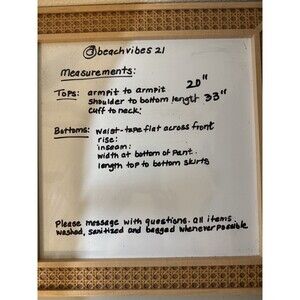 @beachvibes21
Measurements:
Tops: armpit to armpit 20"
shoulder to bottom length 33"
cuff to neck:
Bottoms: waist-tape flat across front
rise:
inseam:
width at bottom of pant.
length top to bottom skirts
Please message with questions. all items
washed, sanitized and bagged whenever possible